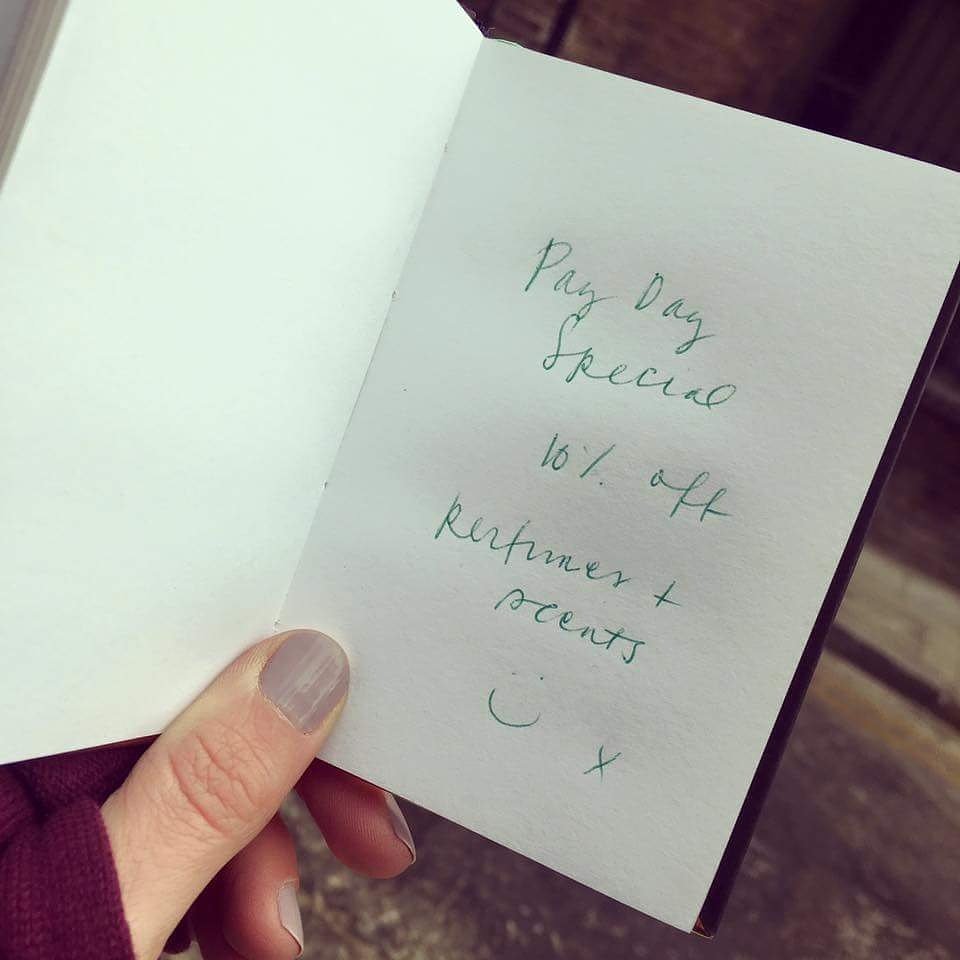 Pay Day
Special
10% off
perfumes +
scents
x